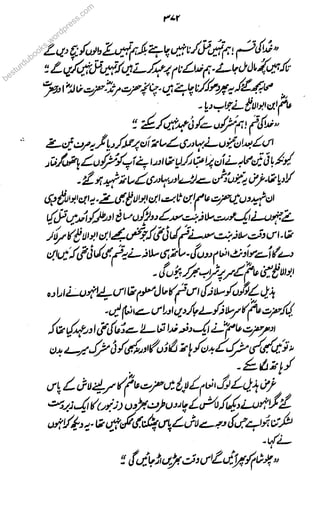 ۳۷۲
"خدا کی قسم! ہم تمہیں قتل کرنا نہیں چاہتے بلکہ ہم تمہیں مکے والوں کو بیچ دیں گے
تاکہ ہمیں کچھ مال مل جائے۔ ہم خدا کے نام پر عہد کرتے ہیں کہ تمہیں قتل نہیں کریں گے"
صحابہ سمجھ گئے کہ یہ پھر دھوکہ کرنا چاہتے ہیں۔ چنانچہ حضرت مرثدؓ، حضرت خالدؓ اور حضرت
عاصمؓ ابن ابو الافلح نے جواب دیا۔
"خدا کی قسم! ہم مشرکوں سے کوئی عہد نہیں کر سکتے"
اس کے بعد ان تینوں نے بہادری کے ساتھ ان پر حملہ کر دیا مگر یہ صرف تین تھے
کیونکہ باقی تین صحابہ نے ان پر اعتبار کر لیا تھا اور اپنے آپ کو مشرکوں کے ہاتھوں گرفتار
کرا دیا تھا، غرض یہ تینوں دشمن سے لڑے اور بہادری کے ساتھ شہید ہو گئے۔
ان شہیدوں میں حضرت عاصم ابن ثابت ابن ابو الافلح بھی تھے۔ یہ ابن ابو الافلح وہی
تھے جنہوں نے ایک عورت سلافہ بنت سعد کے دو لڑکوں مسافع اور جلاس کو احد میں قتل کیا
تھا۔ اس وقت سلافہ بنت سعد نے قسم کھائی تھی کہ جو شخص مجھے ابن ابو الافلح کا سر لا کر
دے گا اسے سو اونٹ انعام دوں گی۔ ساتھ ہی سلافہ نے یہ قسم بھی کھائی تھی کہ میں ابن
ابو الافلح یعنی عاصمؓ کے سر میں شراب بھر کر پیوں گی۔
ہذیل کے لوگوں کو سلافہ کی اس قسم کا حال معلوم تھا اس لئے انہوں نے ارادہ
کیا کہ حضرت عاصمؓ کا سر سلافہ کو لے جا کر دیں اور اس سے انعام لیں۔
ادھر حضرت عاصمؓ نے ایک دفعہ خدا تعالےٰ سے دعا کی تھی اور عہد کیا تھا کہ
نہ تو میں کبھی کسی مشرک کے بدن کو ہاتھ لگاؤں گا اور نہ کبھی کوئی مشرک میرے بدن
کو ہاتھ لگا سکے۔
غرض ہذیل کے لوگ انعام کے لالچ میں حضرت عاصمؓ کا سر لینے لاش کے پاس
گئے مگر انہوں نے دیکھا کہ لاش کے چاروں طرف بھڑوں (زنبور) کا ایک زبردست
لشکر بنا ہوا ہے جس کی وجہ سے لاش کے پاس پھٹکنا بھی ممکن نہیں تھا۔ یہ دیکھ کر انہوں
نے کہا۔
"چلو شام کو پھر آئیں گے اس وقت بھڑیں اڑ جائیں گی"
bestudubooks.wordpress.com